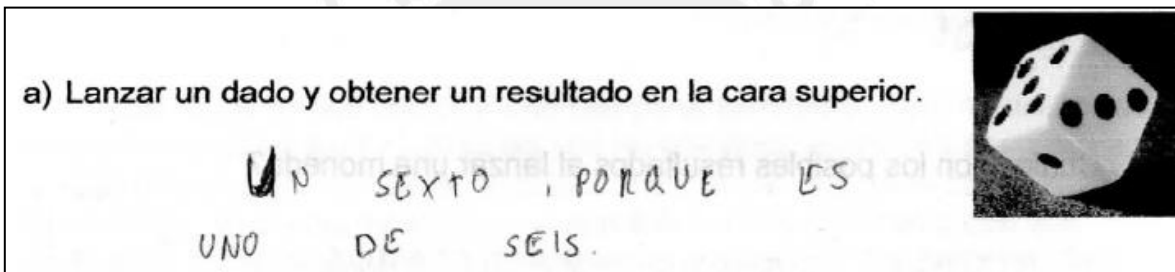 a) Lanzar un dado y obtener un resultado en la cara superior.
UN SEXTO, PORQUE ES
UNO DE SEIS.